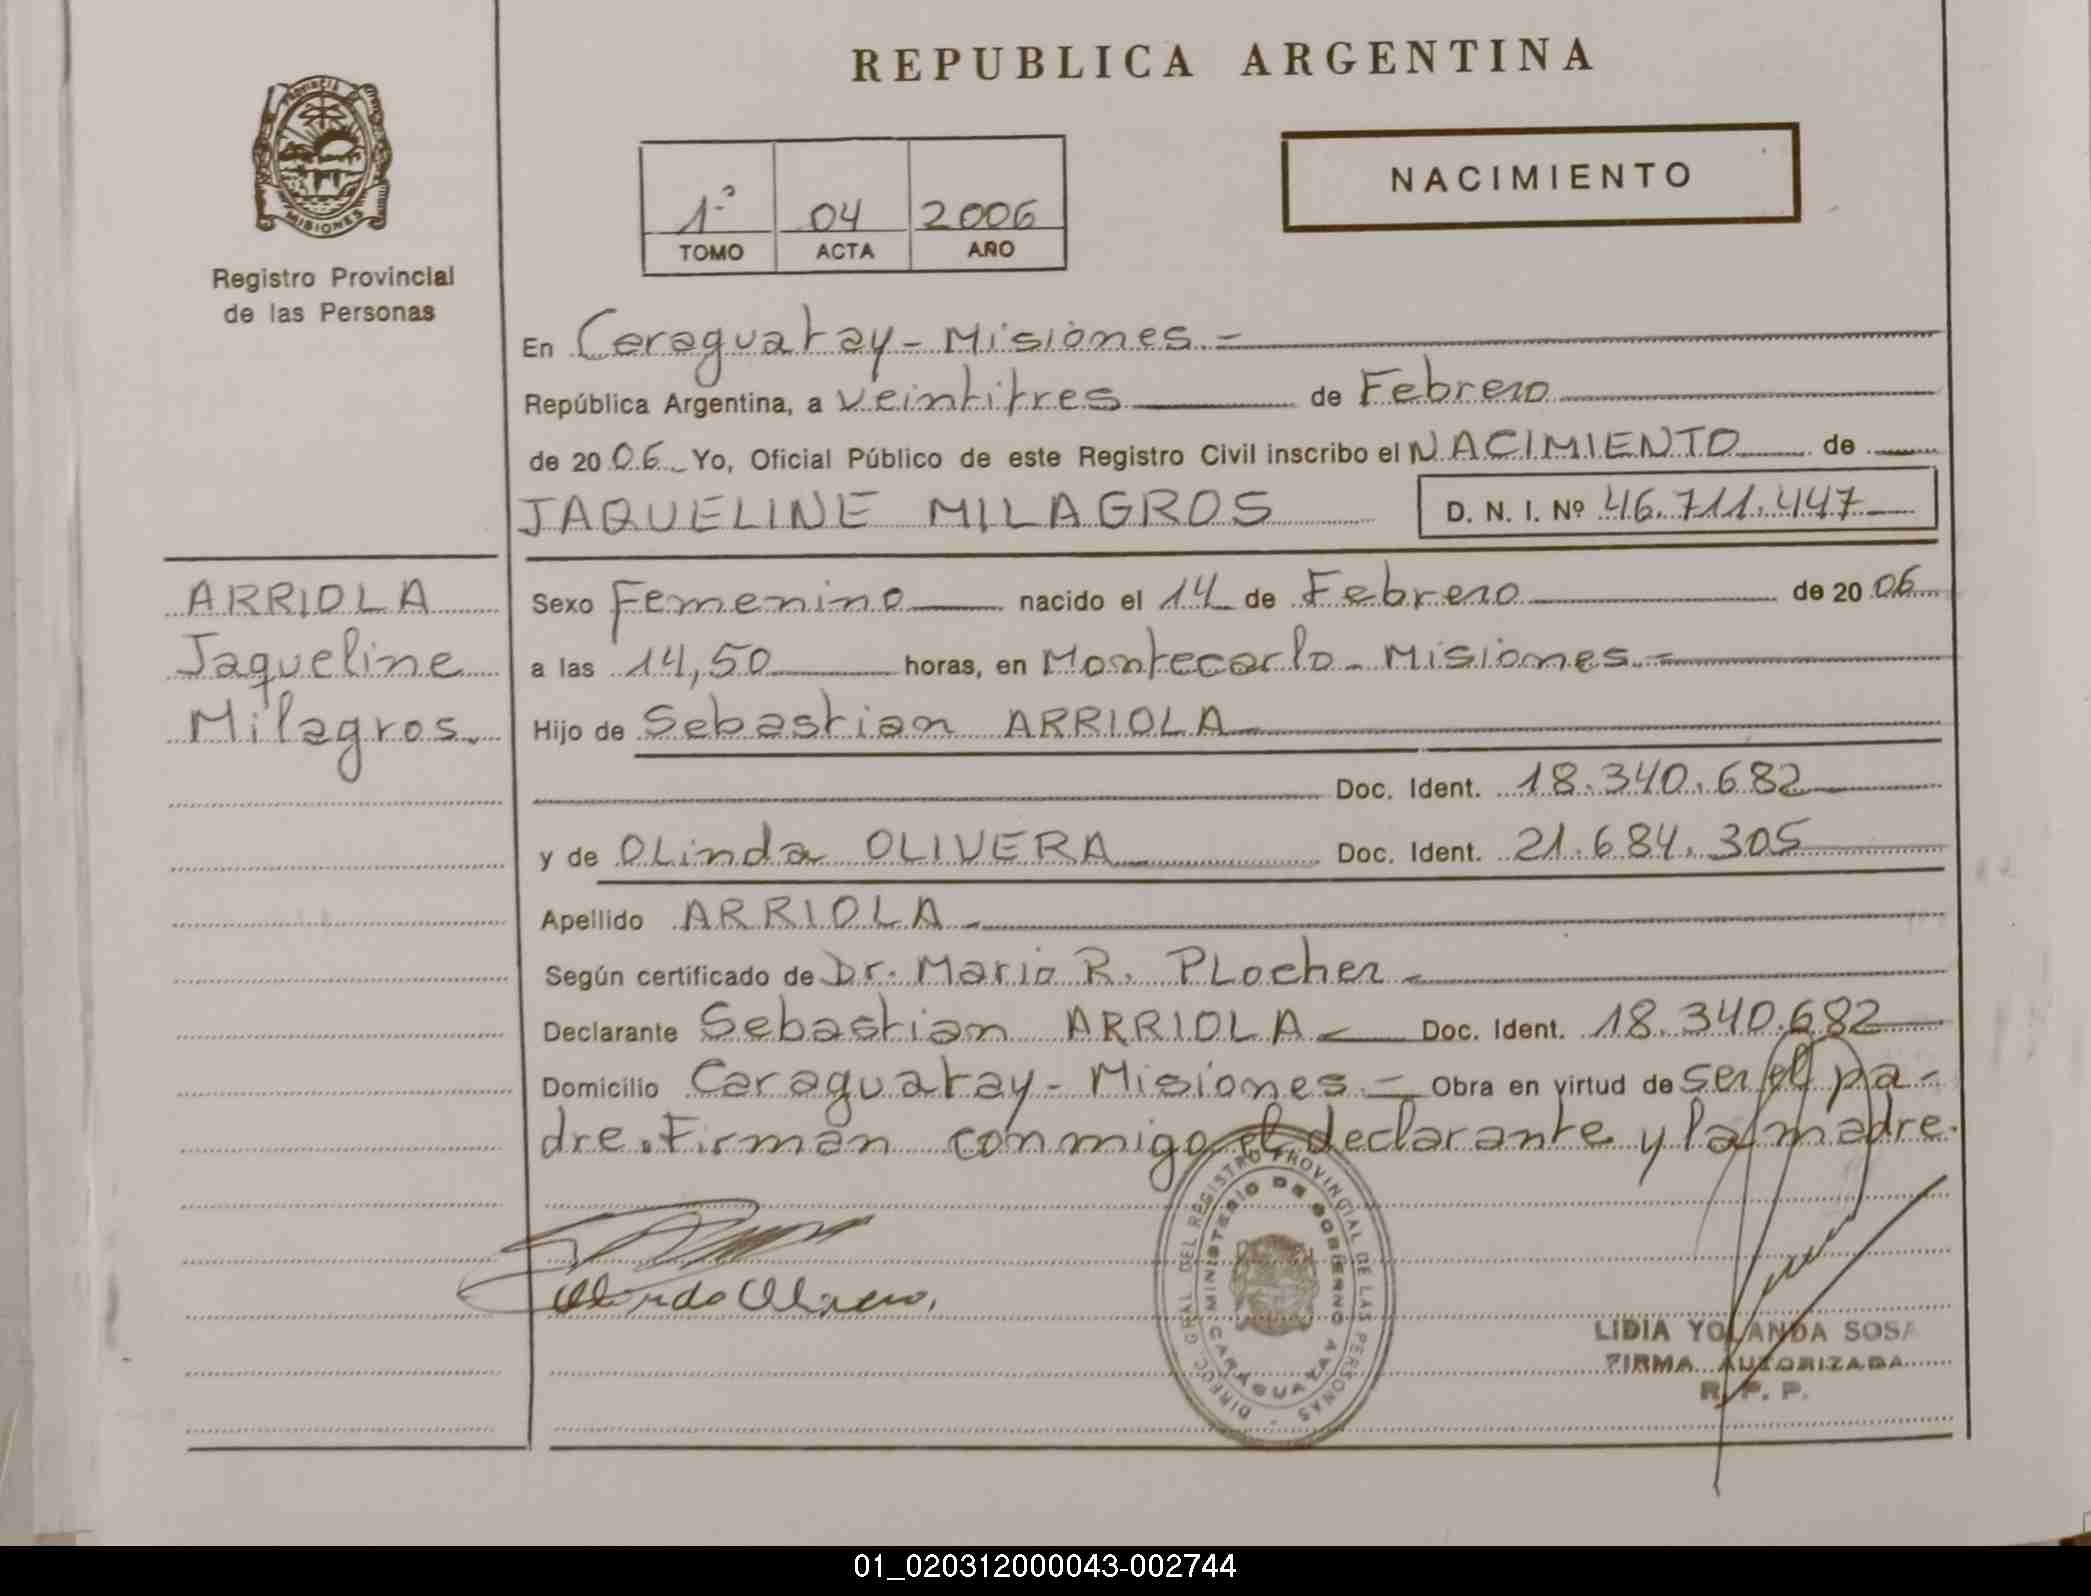 REPUBLICA ARGENTINA
PROVINCIA DE
MISIONES
Registro Provincial
de las Personas
1º 04 2006
TOMO ACTA AÑO
NACIMIENTO
En Caraguatay - Misiones.=
República Argentina, a veintitres de Febrero
de 2006 Yo, Oficial Público de este Registro Civil inscribo el NACIMIENTO de
JAQUELINE MILAGROS D. N. I. Nº 46.711.447
ARRIOLA
Jaqueline
Milagros.
Sexo Femenino nacido el 14 de Febrero de 2006
a las 14,50 horas, en Montecarlo - Misiones.=
Hijo de Sebastian ARRIOLA
Doc. Ident. 18.340.682
y de OLinda OLIVERA Doc. Ident. 21.684.305
Apellido ARRIOLA
Según certificado de Dr. Mario R. PLocher
Declarante Sebastian ARRIOLA Doc. Ident. 18.340.682
Domicilio Caraguatay - Misiones.= Obra en virtud de ser el pa-
dre. Firman conmigo el declarante y la madre.
Olinda Olivera
DIREC. GRAL. DEL REGISTRO PROVINCIAL DE LAS PERSONAS -
MINISTERIO DE GOBIERNO
CARAGUATAY
LIDIA YOLANDA SOSA
FIRMA AUTORIZADA
R. P. P.
01_020312000043-002744